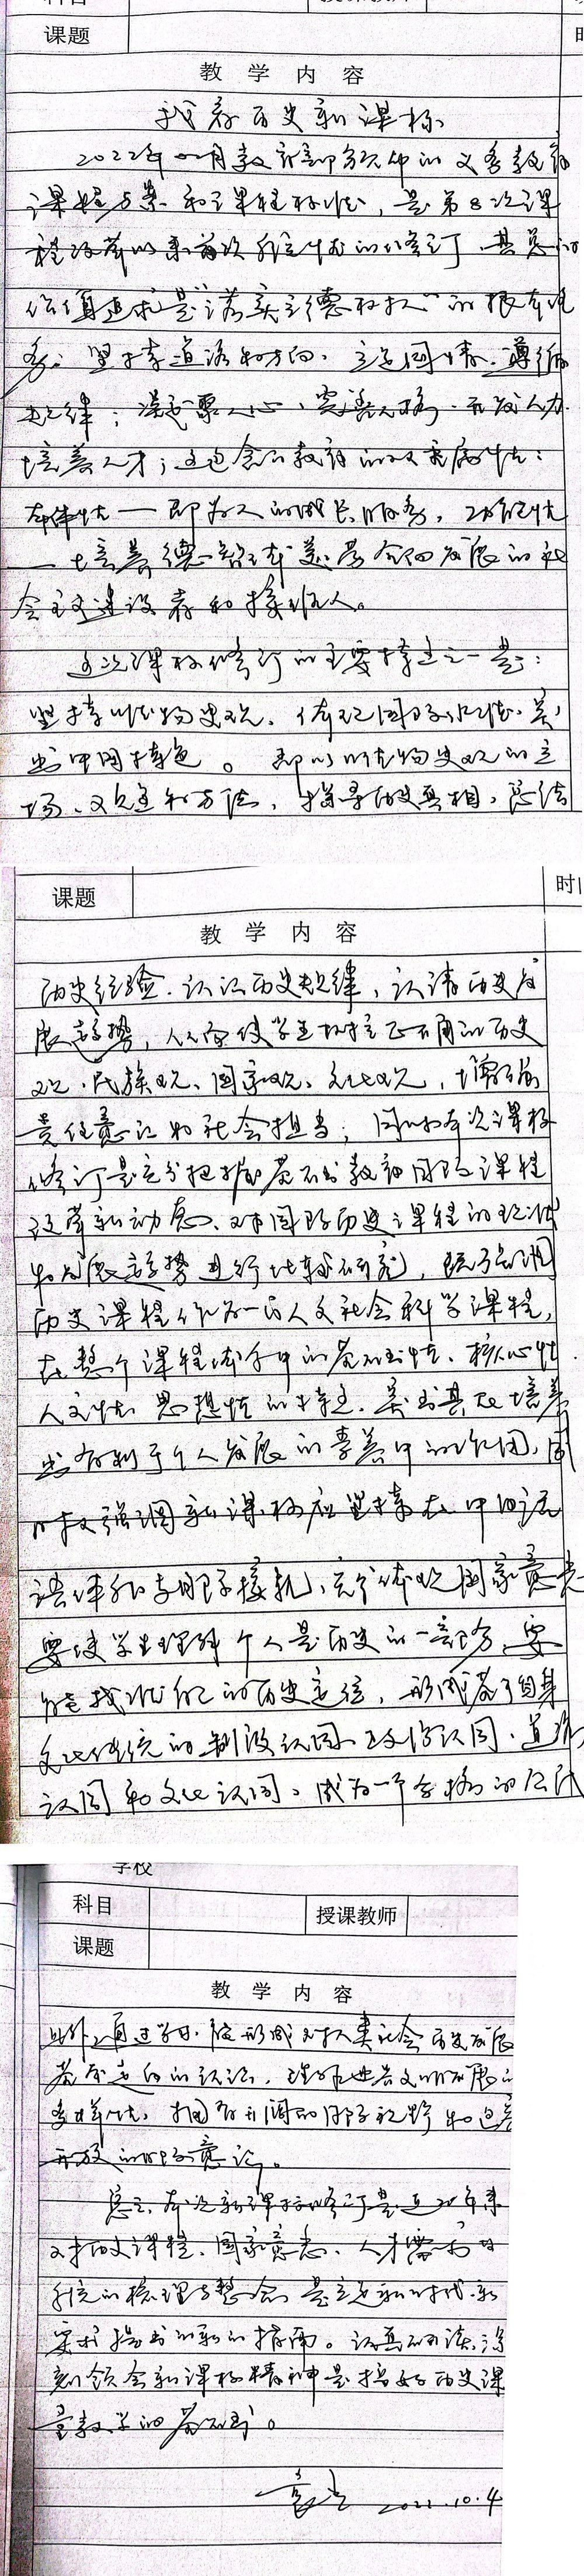 课题
教 学 内 容
我看历史新课标
2022年四月教育部颁布的义务教育
课程方案和课程标准，是第8次课
程改革以来首次系统性的修订 其总的
价值追求是“落实立德树人”的根本任
务；坚持道路和方向、立足国情、遵循
规律；凝聚人心、完善人格、开发人力
培养人才；这包含了教育的双重属性：
本体性—即为人的成长服务，功能性
—培养德智体美劳全面发展的社
会主义建设者和接班人。
这次课标修订的主要特点之一是：
坚持唯物史观、体现国际化、突
出中国特色。即以唯物史观的立
场、观点和方法，探寻历史真相，总结
课题
教 学 内 容
历史经验、认识历史规律，认清历史发
展趋势，从而使学生树立正确的历史
观、民族观、国家观、文化观，增强
责任意识和社会担当；同时本次课标
修订是充分把握基础教育国际课程
改革新动态、对国际历史课程的现状
和发展趋势进行比较研究，既强调
历史课程作为一门人文社会科学课程，
在整个课程体系中的基础性、核心性
人文性 思想性的特点、突出其在培养
出有利于个人发展的素养中的作用，同
时又强调新课标应坚持在中国话
语体系与国际接轨、充分体现国家意志
要使学生理解个人是历史的一部分，要
能找准自己的历史定位，形成基于自身
文化传统的制度认同、政治认同、道路
认同和文化认同。成为一个合格的公民
学校
科目
授课教师
课题
教 学 内 容
此外，通过学习，应形成对人类社会历史发展
基本走向的认识，理解世界文明发展的
多样性，拥有开阔的国际视野和包容
开放的国际意识。
总之，本次新课标修订是近20年来
对历史课程、国家意志、人才培养的
系统的梳理与整合 是立足新时代、新
要求提出的新的指南。认真研读、深
刻领会新课标精神是搞好历史课
堂教学的基础。
2022.10.4